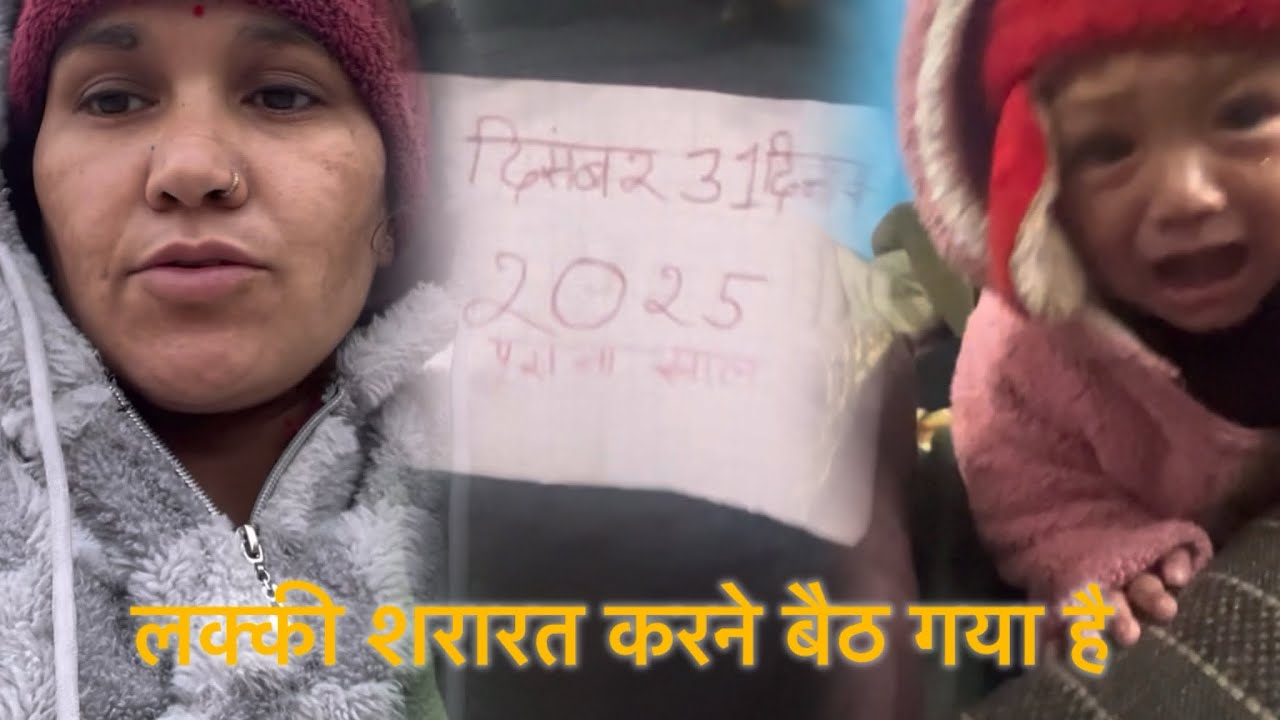 दिसंबर 31 दिन
2025
पुराना साल
लक्की शरारत करने बैठ गया है